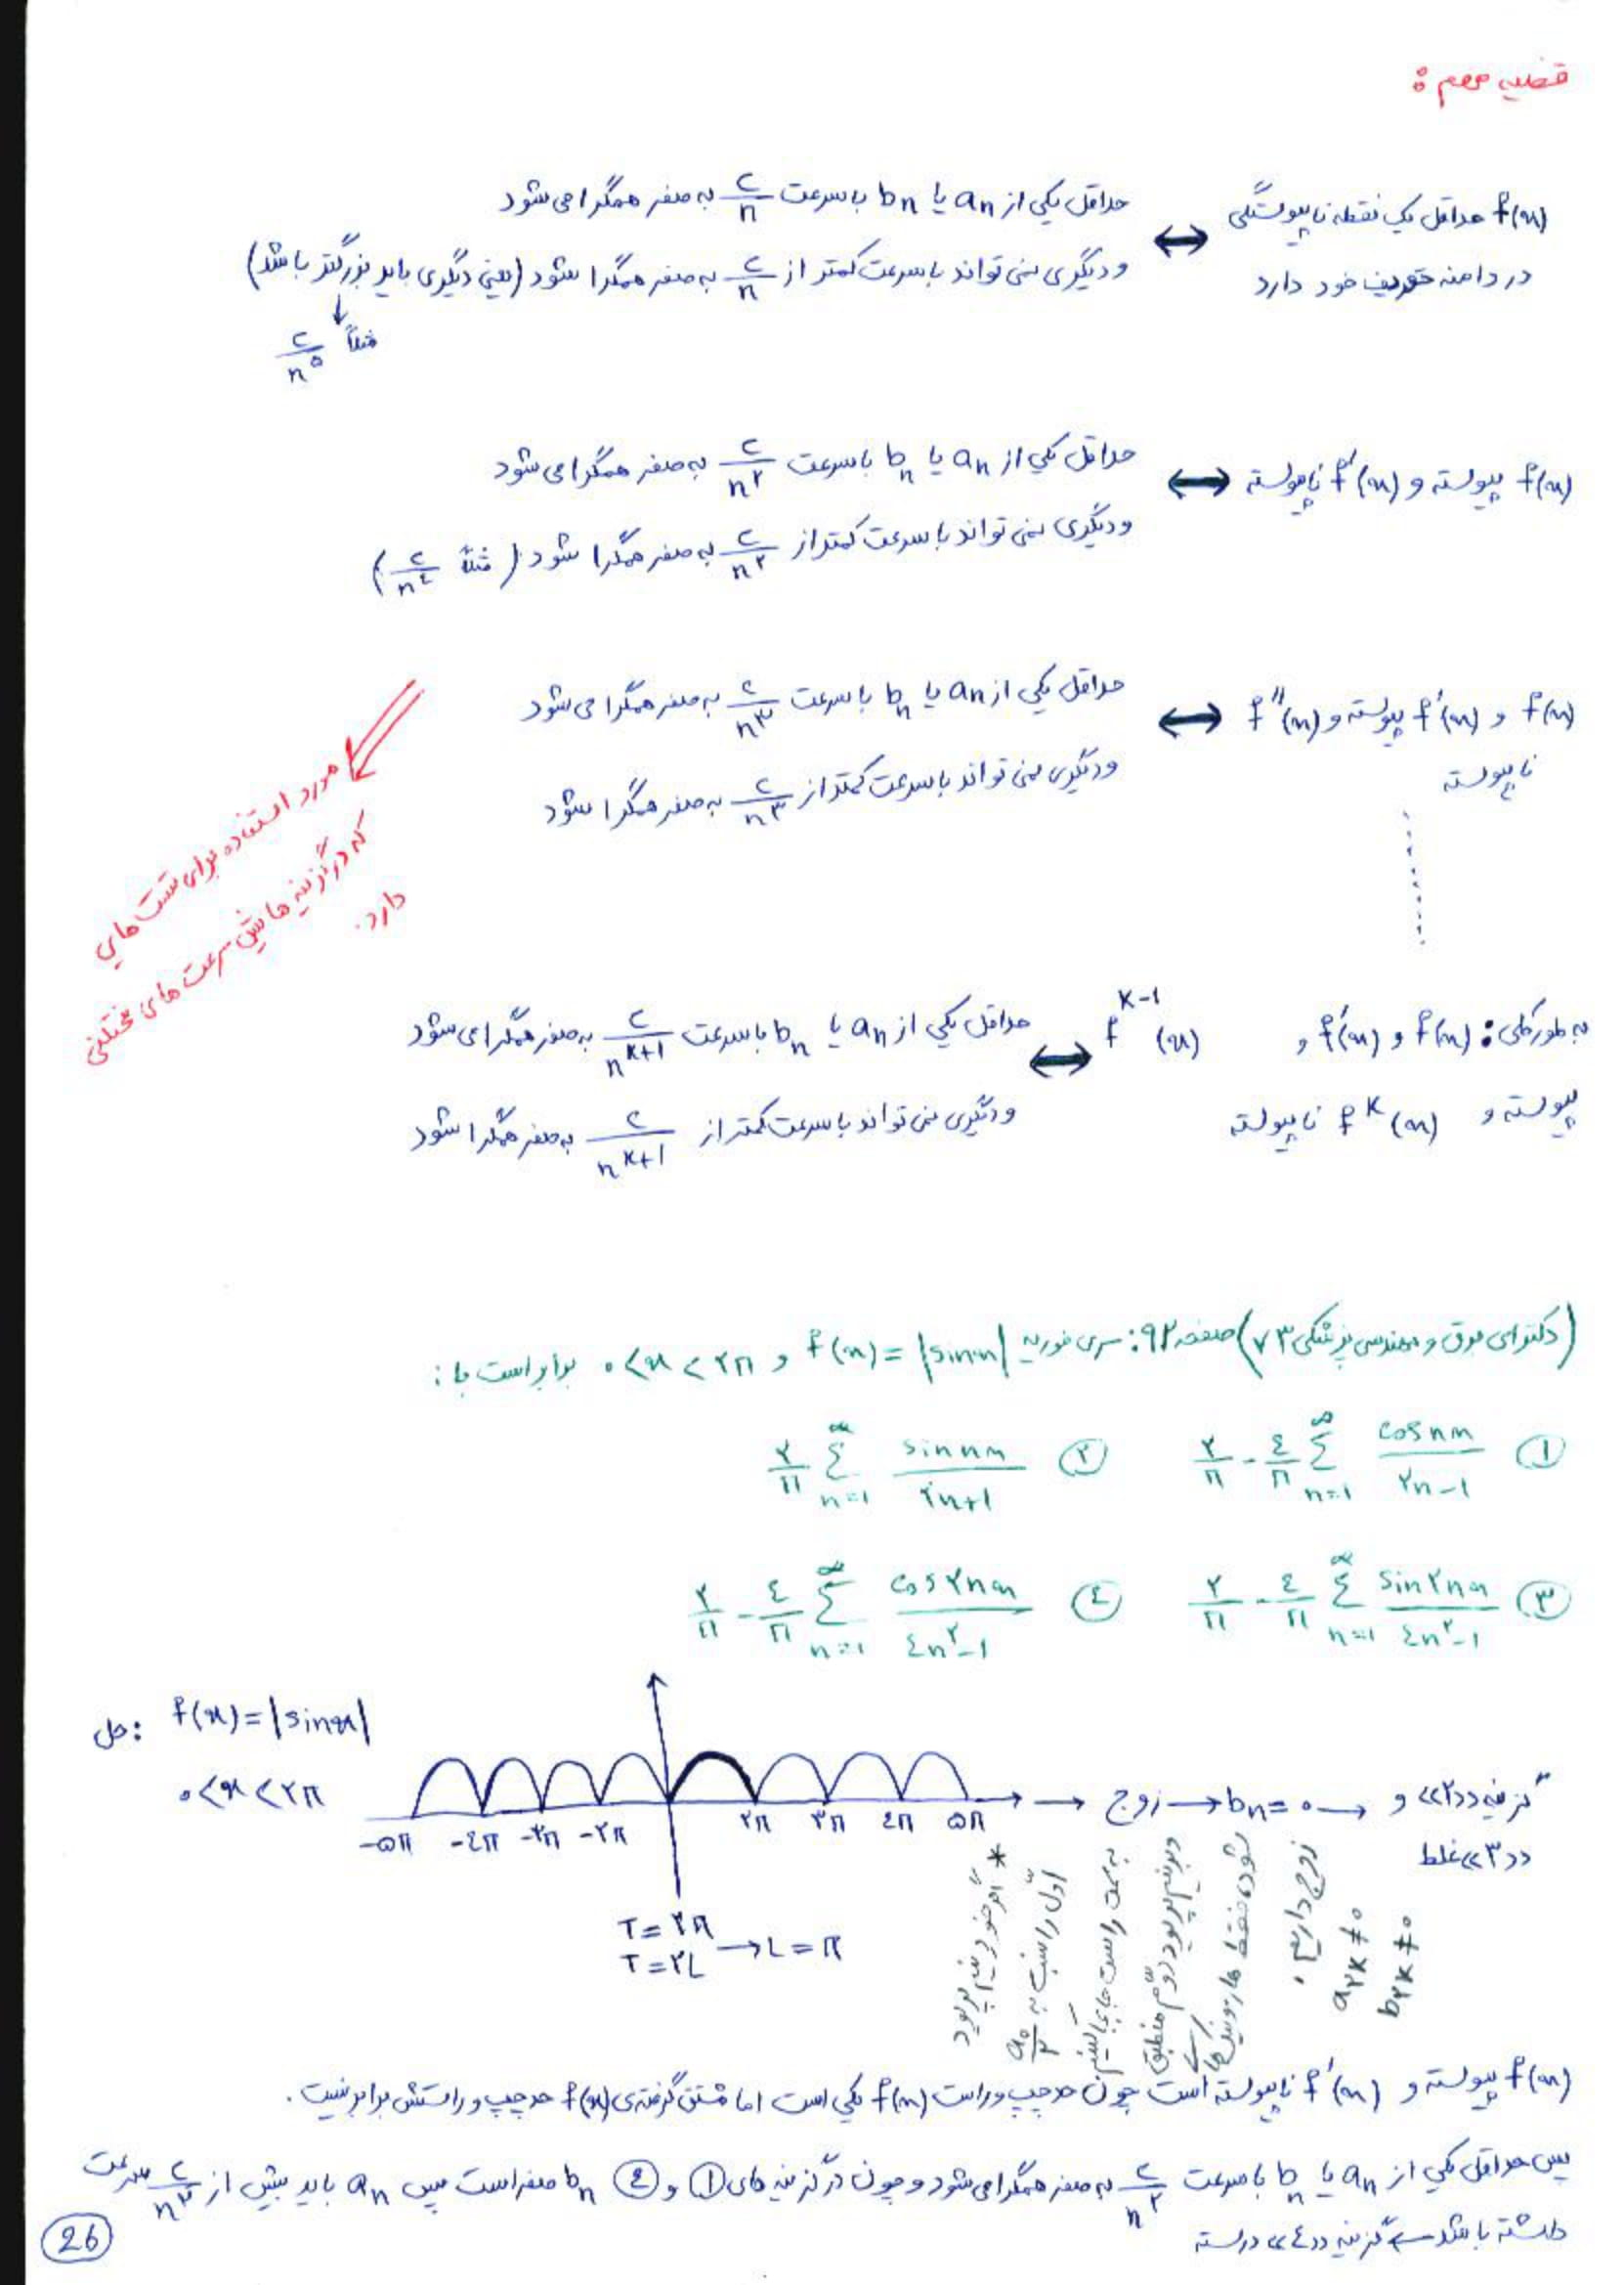 قضیه مهم :
f(x) حداقل یک نقطه ناپیوستگی
در دامنه تعریف خود دارد
↔
حداقل یکی از an یا bn با سرعت c/n به صفر همگرا می شود
و دیگری نمی تواند با سرعت کمتر از c/n به صفر همگرا شود (یعنی دیگری باید بزرگتر باشد)
↓
مثلاً c/n^۵
f(x) پیوسته و f'(x) ناپیوسته ↔ حداقل یکی از an یا bn با سرعت c/n^۲ به صفر همگرا می شود
و دیگری نمی تواند با سرعت کمتر از c/n^۲ به صفر همگرا شود (مثلاً c/n^٤)
f(x) و f'(x) پیوسته و f''(x)
ناپیوسته
↔ حداقل یکی از an یا bn با سرعت c/n^۳ به صفر همگرا می شود
و دیگری نمی تواند با سرعت کمتر از c/n^۳ به صفر همگرا شود
مورد استفاده برای تست های
که در گزینه هایش سرعت های مختلفی
دارد.
به طور کلی : f(x) و f'(x) و f^K-1 (x)
پیوسته و f^K (x) ناپیوسته
↔
حداقل یکی از an یا bn با سرعت c/n^K+1 به صفر همگرا می شود
و دیگری نمی تواند با سرعت کمتر از c/n^K+1 به صفر همگرا شود
(دکترای برق و مهندسی پزشکی ۷۳) صفحه ۹۲: سری فوریه f(x) = |sinx| و ۰<x<۲π برابر است با :
① ۲/π - ٤/π ∑ n=1 ∞ cos nx / ۲n-1
② ۲/π ∑ n=1 ∞ sin nx / ۲n+1
③ ۲/π - ٤/π ∑ n=1 ∞ sin ۲nx / ٤n^۲-1
④ ۲/π - ٤/π ∑ n=1 ∞ cos ۲nx / ٤n^۲-1
حل: f(x) = |sinx|
۰<x<۲π
-۵π -٤π -۳π -۲π ۲π ۳π ٤π ۵π
→ زوج → bn = ۰ → گزینه «۲» و
«۳» غلط
T = ۲π
T = ۲L → L = π
* اگر نیم پریود
اول را نسبت به a۰/۲
به سمت راست جابجا کنیم
و بر نیم پریود دوم منطبق
شود، فقط هارمونیک های
زوج داریم.
a۲K ≠ ۰
b۲K ≠ ۰
f(x) پیوسته و f'(x) ناپیوسته است چون حد چپ و راست f(x) یکی است اما مشتق گرفته ی f(x) حد چپ و راستش برابر نیست.
پس حداقل یکی از an یا bn با سرعت c/n^۲ به صفر همگرا می شود و چون در گزینه های ① و ④ bn صفر است پس an باید بیش از c/n^۲ سرعت
داشته باشد ← گزینه «٤» درسته
26